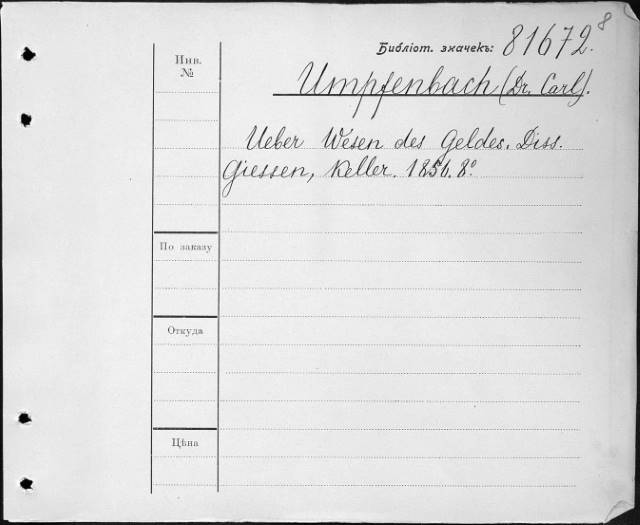 8
Библіот. значекъ: 81672.
Инв.
№
Umpfenbach (Dr. Carl).
Ueber Wesen des Geldes. Diss.
Giessen, Keller. 1856. 8º
По заказу
Откуда
Цѣна